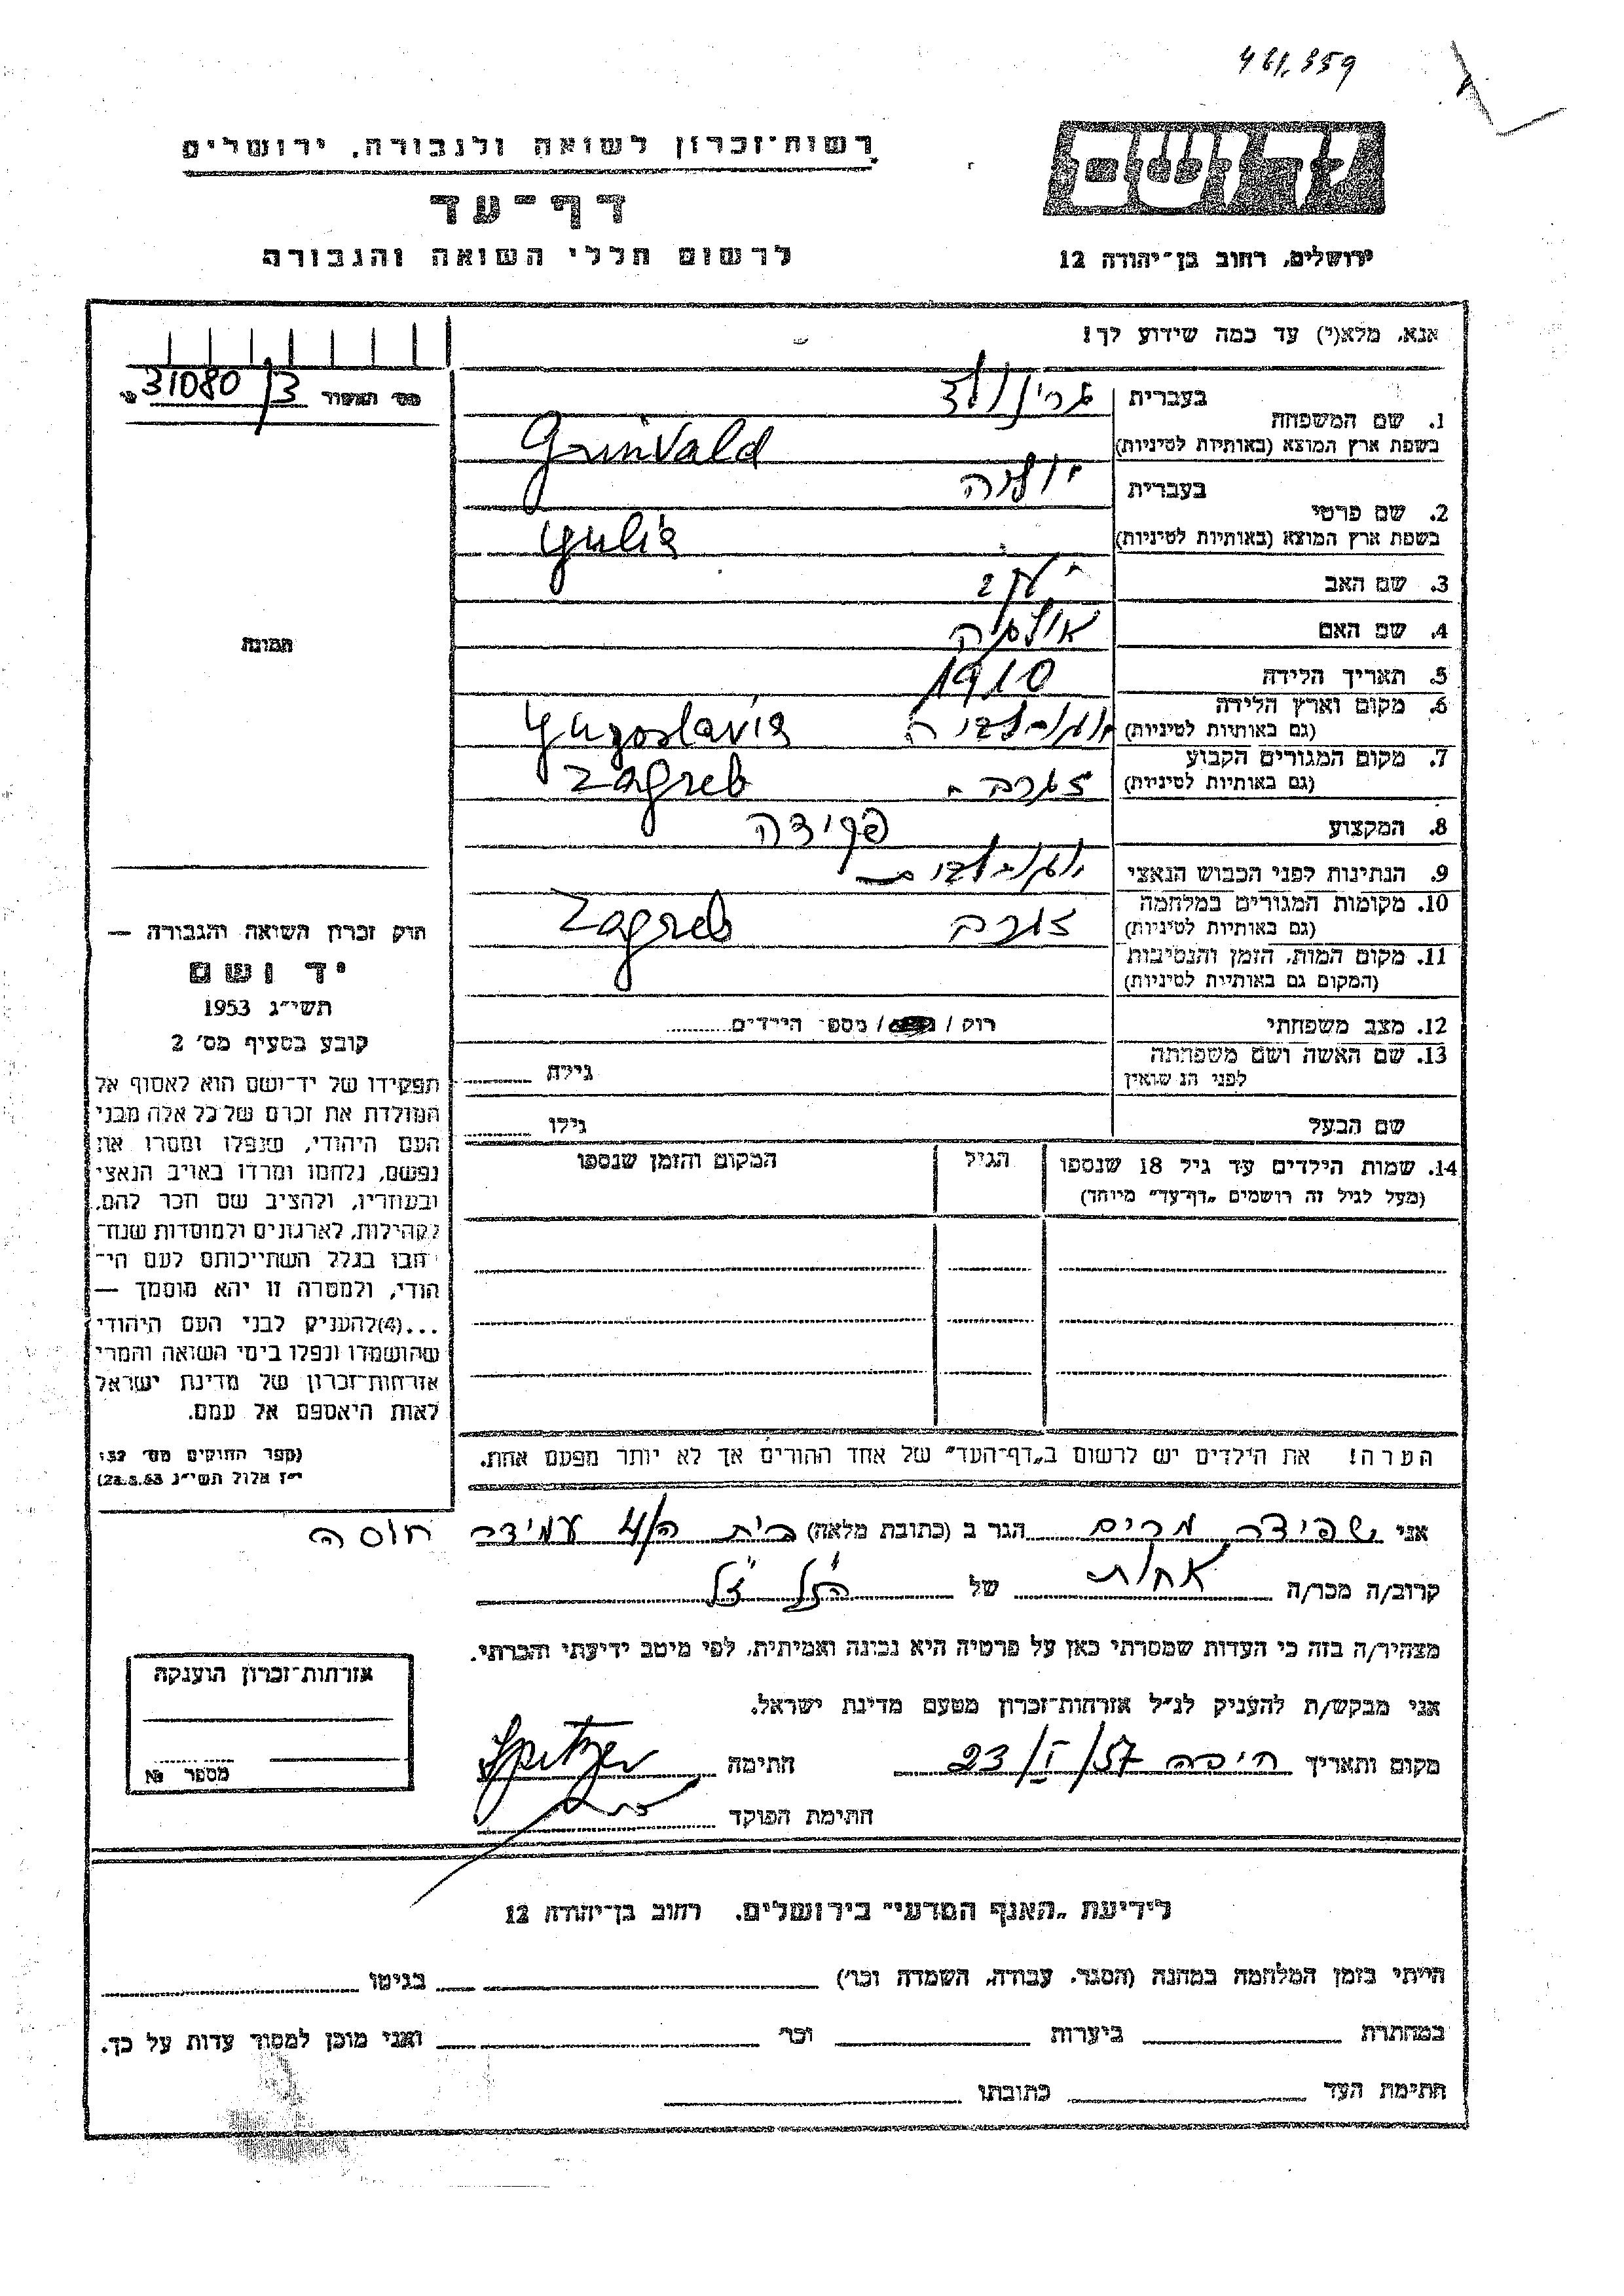 461,359
רשות־זכרון לשואה ולגבורה, ירושלים
דף־עד
לרשום חללי השואה והגבורה
ידושם
ירושלים, רחוב בן־יהודה 12
אנא, מלא(י) עד כמה שידוע לך!
מס׳ תאשור 31080/3
1. שם המשפחה בעברית גרינולד
בשפת ארץ המוצא (באותיות לטיניות) Grinvald
2. שם פרטי בעברית יוליה
בשפת ארץ המוצא (באותיות לטיניות) Yulia
3. שם האב
4. שם האם
5. תאריך הלידה 1910
6. מקום וארץ הלידה (גם באותיות לטיניות) יוגוסלביה Yugoslavia
7. מקום המגורים הקבוע (גם באותיות לטיניות) זגרב Zagreb
8. המקצוע פקידה
9. הנתינות לפני הכבוש הנאצי
10. מקומות המגורים במלחמה (גם באותיות לטיניות) זגרב Zagreb
11. מקום המות, הזמן והנסיבות (המקום גם באותיות לטיניות)
12. מצב משפחתי רוק / / מספר הילדים
13. שם האשה ושם משפחתה לפני הנשואין גילה
שם הבעל גילו
14. שמות הילדים עד גיל 18 שנספו הגיל המקום והזמן שנספו
(מעל לגיל זה רושמים „דף־עד” מיוחד)
הערה! את הילדים יש לרשום ב„דף־העד” של אחד ההורים אך לא יותר מפעם אחת.
תמונה
חוק זכרון השואה והגבורה —
יד ושם
תשי״ג 1953
קובע בסעיף מס׳ 2
תפקידו של יד־ושם הוא לאסוף אל
המולדת את זכרם של כל אלה מבני
העם היהודי, שנפלו ומסרו את
נפשם, נלחמו ומרדו באויב הנאצי
ובעוזריו, ולהציב שם וזכר להם,
לקהילות, לארגונים ולמוסדות שנח־
רבו בגלל השתייכותם לעם הי־
הודי, ולמטרה זו יהא מוסמך —
...(4) להעניק לבני העם היהודי
שהושמדו ונפלו בימי השואה והמרי
אזרחות־זכרון של מדינת ישראל
לאות היאספם אל עמם.
(ספר החוקים מס׳ 132
י״ז אלול תשי״ג 28.8.53)
אני שפיצר מרים הגר ב (כתובת מלאה) בית 4/ה עמידר חוסה
קרוב/ה מכר/ה אחות של הנ״ל
מצהיר/ה בזה כי העדות שמסרתי כאן על פרטיה היא נכונה ואמיתית, לפי מיטב ידיעתי והכרתי.
אני מבקש/ת להעניק לנ״ל אזרחות־זכרון מטעם מדינת ישראל.
מקום ותאריך חיפה 23/I/57 חתימה Spitzer
חתימת הפוקד
אזרחות־זכרון הוענקה
מספר №
לידיעת „האגף המדעי” בירושלים, רחוב בן־יהודה 12
הייתי בזמן המלחמה במחנה (הסגר, עבודה, השמדה וכו׳) בגיטו
במחתרת ביערות וכו׳ ואני מוכן למסור עדות על כך.
חתימת העד כתובתו